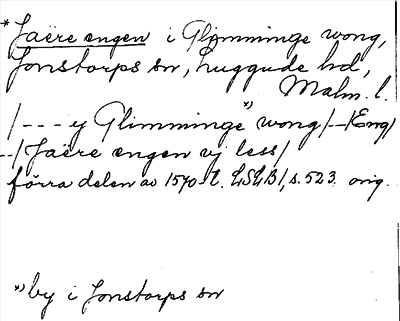 *Jaëre engen i Glimminge wong,
Jonstorps sn, Luggude hd,
Malm. l.
/--- y Glimminge *) wong/--/Eng/
--/Jaëre engen vj less/
förra delen av 1570-t. LSLB/, s. 523. orig.
*) by i Jonstorps sn